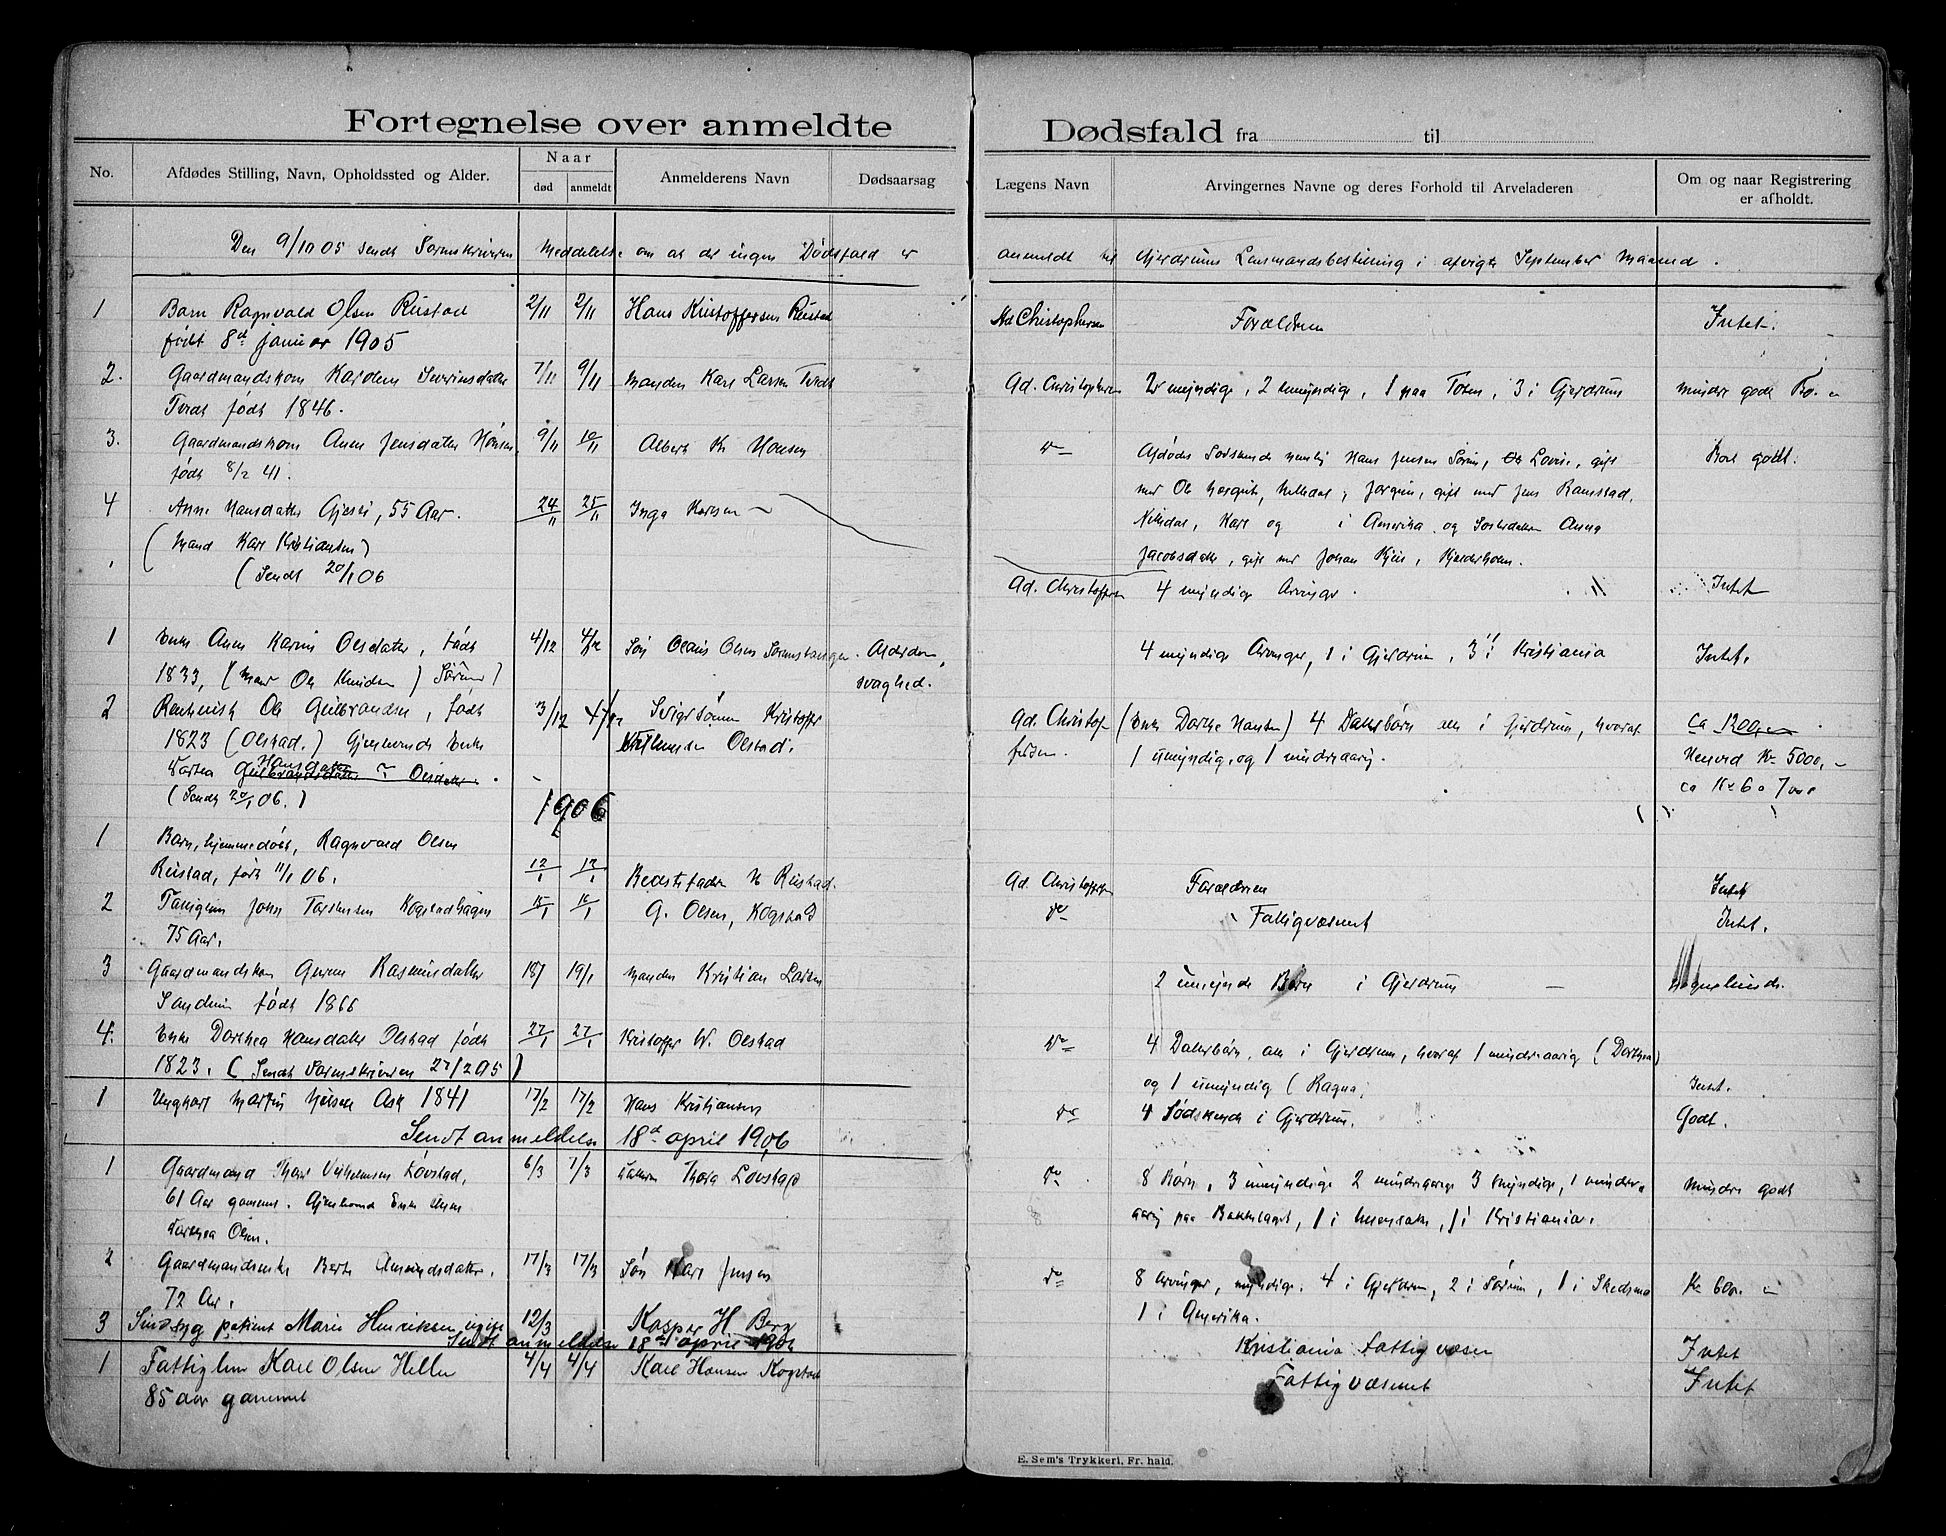 Fortegnelse over anmeldte Dødsfald fra til
No.
Afdødes Stilling, Navn, Opholdssted og Alder.
Naar
død anmeldt
Anmelderens Navn
Dødsaarsag
Lægens Navn
Arvingernes Navne og deres Forhold til Arveladeren
Om og naar Registrering
er afholdt.
Den 9/10 05 sendt Sorenskriveren Meddelelse om at der ingen Dødsfald er anmeldt til Gjerdrums Lensmandsbestilling i afvigte September Maaned.
1 Barn Ragnvald Olsen Rustad 2/11 2/11 Hans Kristoffersen Rustad Ad Christophersen Forældrene Intet.
født 8d januar 1905
2. Gaardmandskone Karoline Severinsdatter 7/11 9/11 Manden Karl Larsen Tveit Ad. Christophersen 2 myndige, 2 umyndige, 1 paa Toten, 3 i Gjerdrum mindre godt Bo.
født 1846.
3. Gaardmandskone Anne Jensdatter 9/11 10/11 Albert Kr. Hansen do Afdødes Sødskende nemlig Hans Jensen Sørum, Lovise, gift Boet godt.
født 8/2 41.
med Ole Nittedal, Jørgine, gift med Jens Ramstad,
4 Anne Hansdatter 55 Aar. 24/11 25/11 Inga Karlsen
Nittedal, Karl og i Amerika og Søsterdatter Anna
(Mand Karl Kristiansen)
Jacobsdatter, gift med Johan
(Sendt 20/1 06
Ad. Christoffersen 4 myndige Arvinger. Intet
1 Enke Anne Karine Olsdatter, født 4/12 4/12 Søn Olaus Olsen Alderdoms
1833, (Mand Ole Knudsen) Sørum) svaghed.
4 myndige Arvinger, 1 i Gjerdrum, 3 i Kristiania Intet.
2 Ole Gulbrandsen, født 3/12 4/12 Svigersønnen Kristoffer Ad. Christoffersen (Enke Dorthe Hansen) 4 Datterbørn alle i Gjerdrum, hvoraf ca 1200,-
1823 (Olstad.) Gjenlevende Enke Olstad.
1 umyndig, og 1 mindreaarig. Henved Kr 5000,-
Dorthea Gulbrandsdatter Hansdatter Olsdatter.
(Sendt 20/1 06.)
ca Kr 6 a 7000
1906
1 Barn, hjemmedøbt, Ragnvald Olsen
Rustad, født 11/1 06. 12/1 12/1 Bedstefaderen H Rustad. Ad. Christoffersen Forældrene Intet
2 John Torstensen Kogstadhagen 15/1 15/1 G. Olsen, Kogstad do Fattigvæsenet Intet.
75 Aar.
3 Gaardmandskone Rasmusdatter 18/1 19/1 Manden Kristian Larsen 2 umynde Børn i Gjerdrum
født 1866
4. Enke Dorthea Hansdatter Olstad født 27/1 27/1 Kristoffer W. Olstad do 4 Datterbørn, alle i Gjerdrum, hvoraf 1 mindreaarig (Dorthea)
1823. (Sendt Sorenskriveren 27/2 05)
og 1 umyndig (Ragna) Intet.
1 Ungkarl Martin Ask 1841 17/2 17/2 Hans Kristiansen do 4 Sødskende i Gjerdrum. Godt.
Sendt anmeldelse 18d april 1906
1 Gaardmand Thor Vilhelmsen Løvstad, 6/3 7/3 Thora Løvstad do 8 Børn, 3 umyndige 2 mindreaarige 3 myndige, 1 mindre
61 Aar gammel. Gjenlevende Enke Anne
aarig paa Bakkelaget, 1 i 1 i Kristiania. mindre godt
Dorthea Olsen.
2 Gaardmandsenke Berte Amundsdatter. 17/3 17/3 Søn Karl Jensen do 8 Arvinger, myndige. 4 i Gjerdrum, 2 i Sørum, 1 i Skedsmo Kr 600.-
72 Aar.
1 i Amerika.
3 Sindsyg patient Marie Henriksen ugift 12/3 Kasper H Berg Kristiania Fattigvæsen Intet
Sendt anmeldelse 18d april 1906
1 Fattiglem Karl Olsen Heller 4/4 4/4 Karl Hansen Kogstad Fattigvæsenet Intet
85 aar gammel
E. Sem's Trykkeri, Fr. hald.